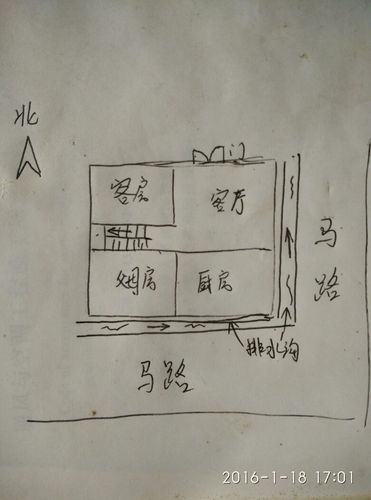 北
门
客房
客厅
马
路
烟房
厨房
排水沟
马路
2016-1-18 17:01